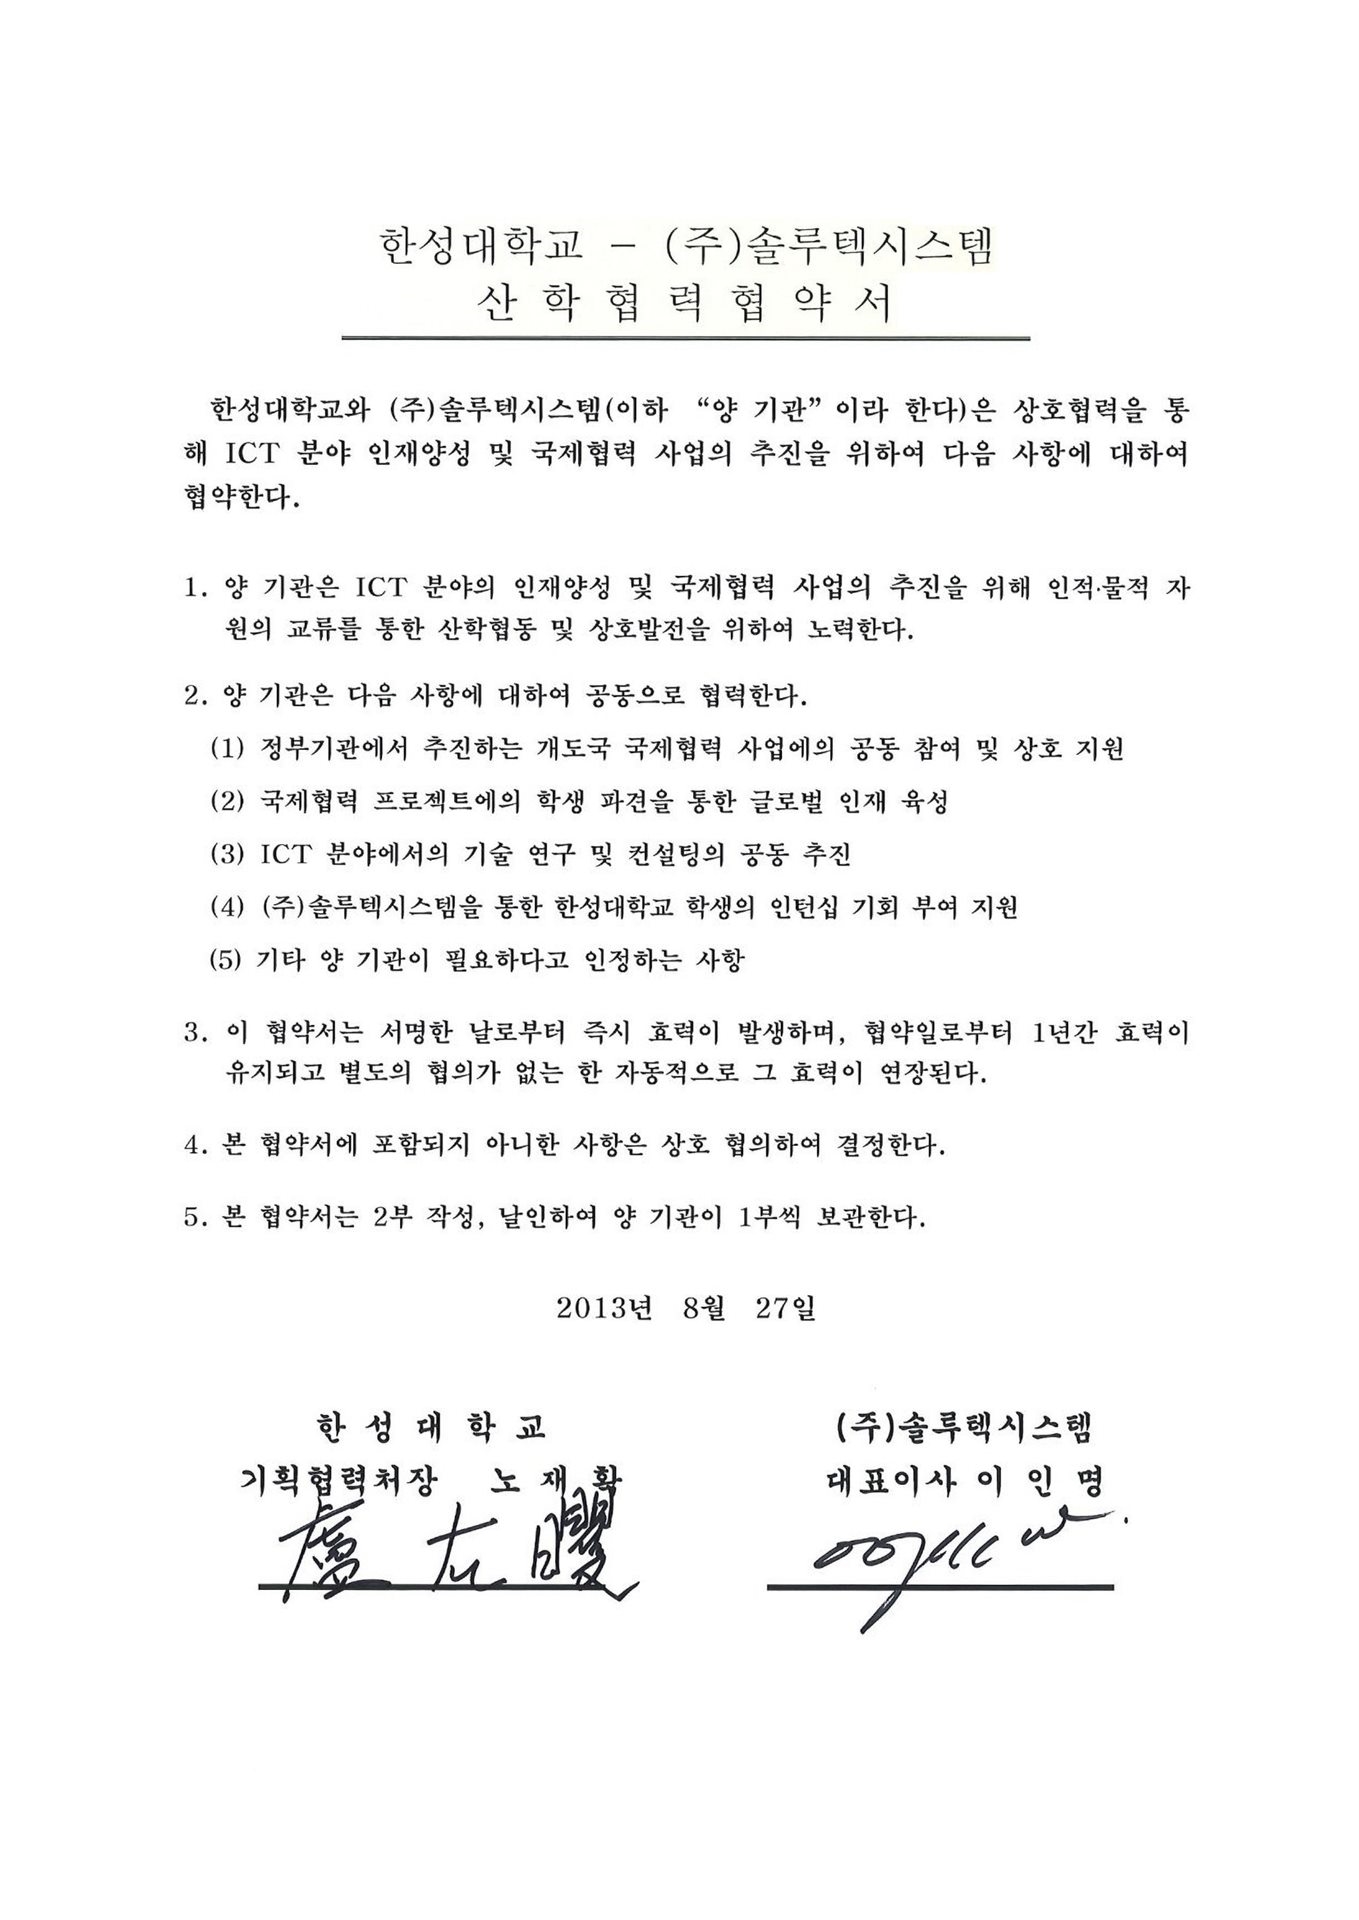 한성대학교 - (주)솔루텍시스템
산 학 협 력 협 약 서
한성대학교와 (주)솔루텍시스템(이하 “양 기관” 이라 한다)은 상호협력을 통
해 ICT 분야 인재양성 및 국제협력 사업의 추진을 위하여 다음 사항에 대하여
협약한다.
1. 양 기관은 ICT 분야의 인재양성 및 국제협력 사업의 추진을 위해 인적·물적 자
원의 교류를 통한 산학협동 및 상호발전을 위하여 노력한다.
2. 양 기관은 다음 사항에 대하여 공동으로 협력한다.
(1) 정부기관에서 추진하는 개도국 국제협력 사업에의 공동 참여 및 상호 지원
(2) 국제협력 프로젝트에의 학생 파견을 통한 글로벌 인재 육성
(3) ICT 분야에서의 기술 연구 및 컨설팅의 공동 추진
(4) (주)솔루텍시스템을 통한 한성대학교 학생의 인턴십 기회 부여 지원
(5) 기타 양 기관이 필요하다고 인정하는 사항
3. 이 협약서는 서명한 날로부터 즉시 효력이 발생하며, 협약일로부터 1년간 효력이
유지되고 별도의 협의가 없는 한 자동적으로 그 효력이 연장된다.
4. 본 협약서에 포함되지 아니한 사항은 상호 협의하여 결정한다.
5. 본 협약서는 2부 작성, 날인하여 양 기관이 1부씩 보관한다.
2013년 8월 27일
한 성 대 학 교
기획협력처장 노 재 확
(주)솔루텍시스템
대표이사 이 인 명